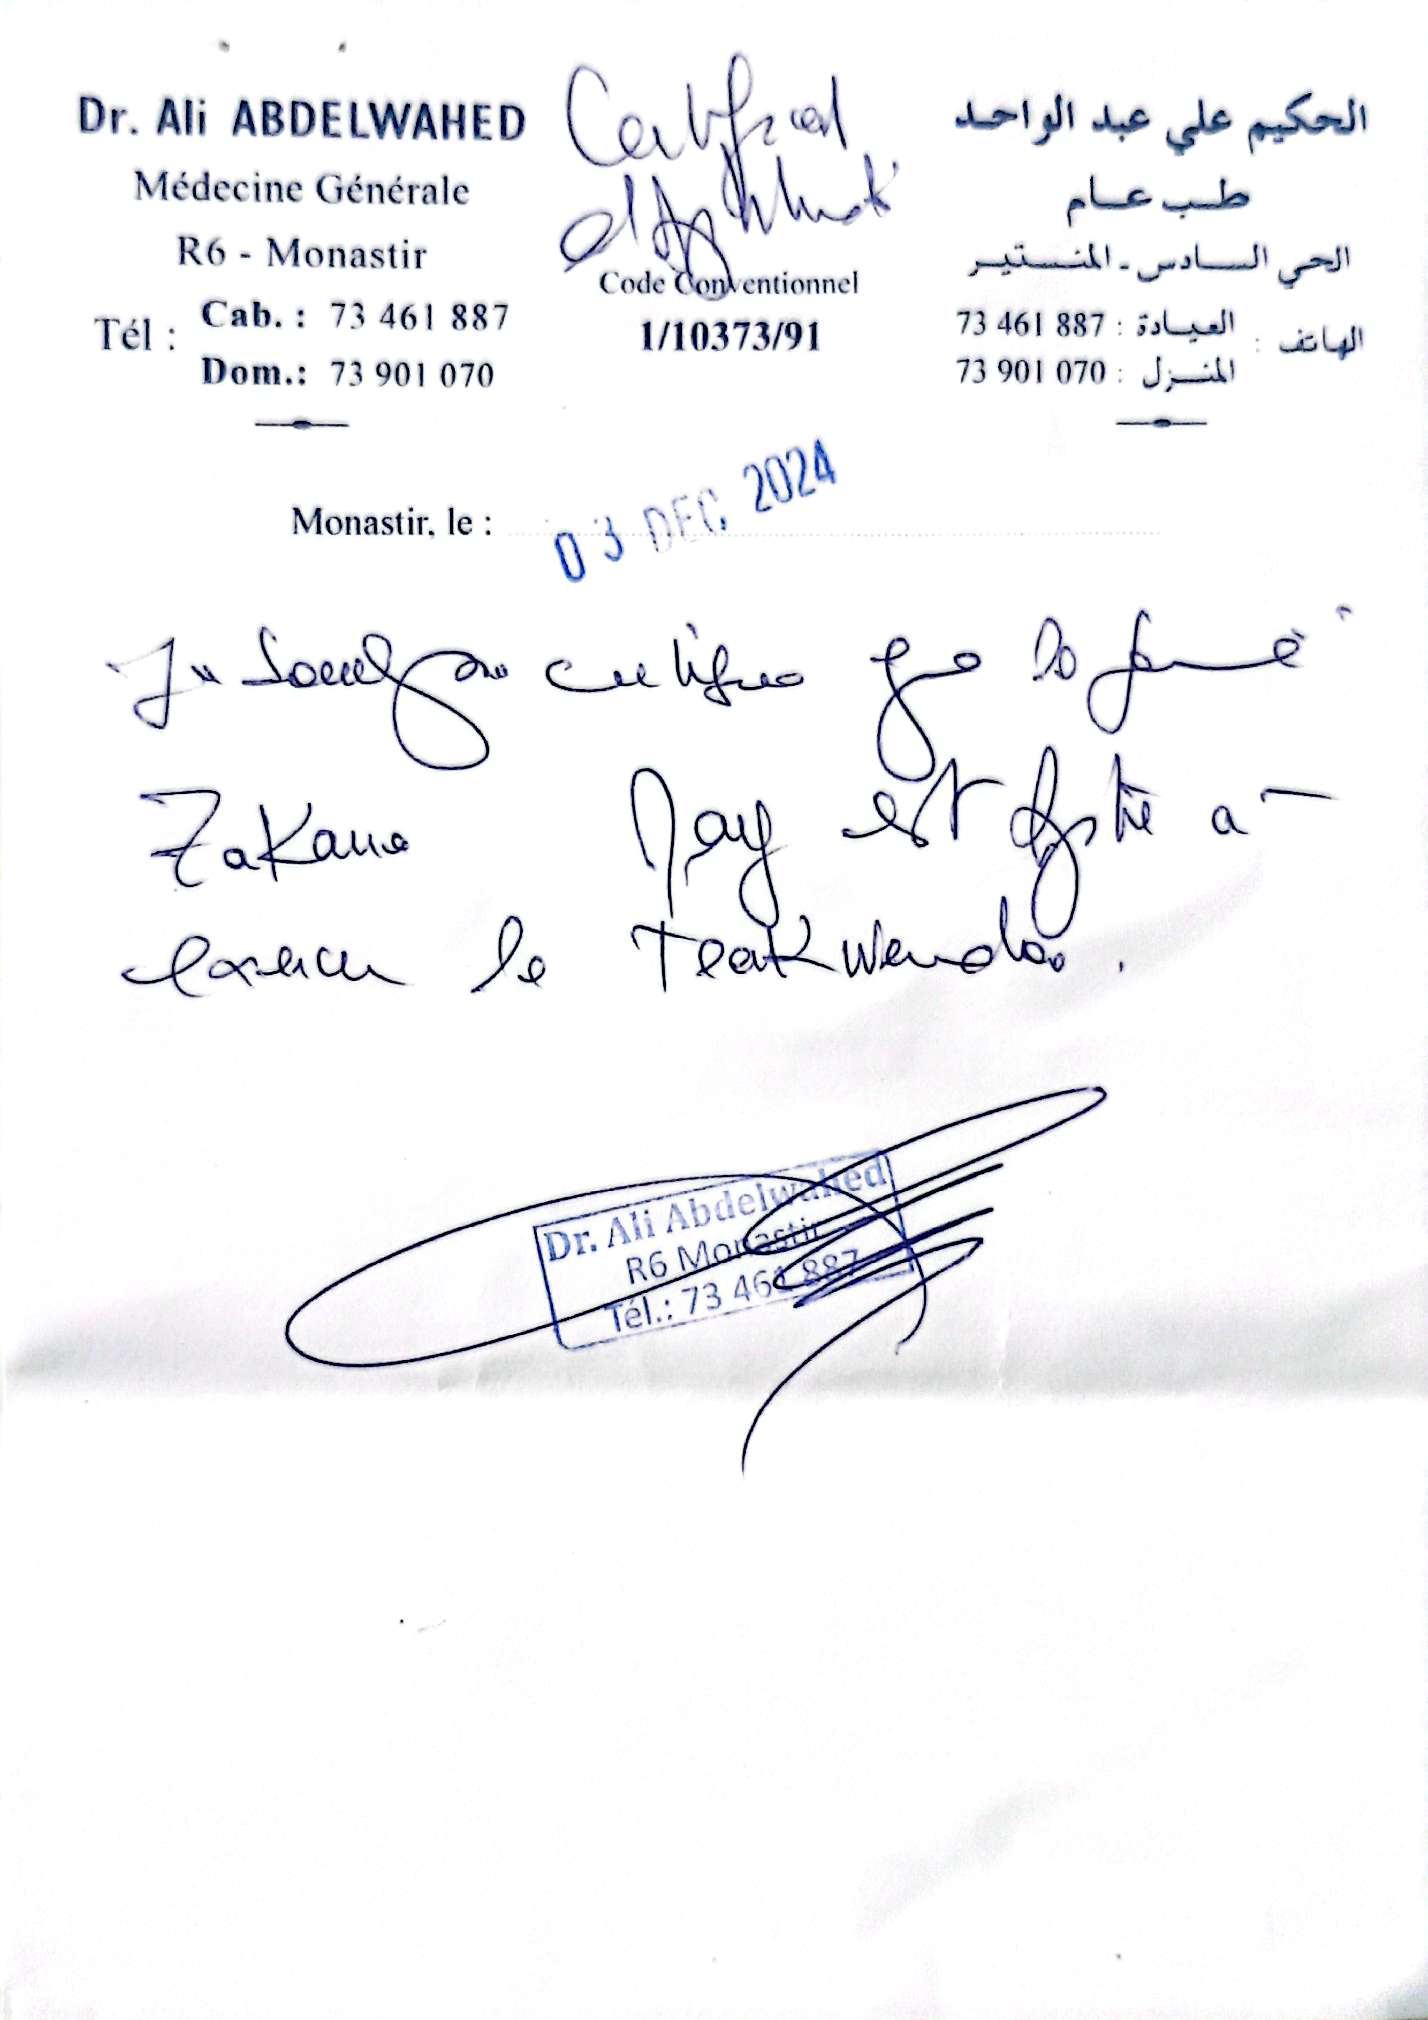 Dr. Ali ABDELWAHED
Médecine Générale
R6 - Monastir
Tél :
Cab. : 73 461 887
Dom.: 73 901 070
Certificat
d'Aptitude
Code Conventionnel
1/10373/91
الحكيم علي عبد الواحد
طب عام
الحي السادس - المنستير
الهاتف :
العيادة : 73 461 887
المنزل : 73 901 070
Monastir, le : 03 DEC. 2024
Je soussigné certifie que
Zakaria est apte a
exercer le Teakwendoo.
Dr. Ali Abdelwahed
R6 Monastir
Tél.: 73 461 887